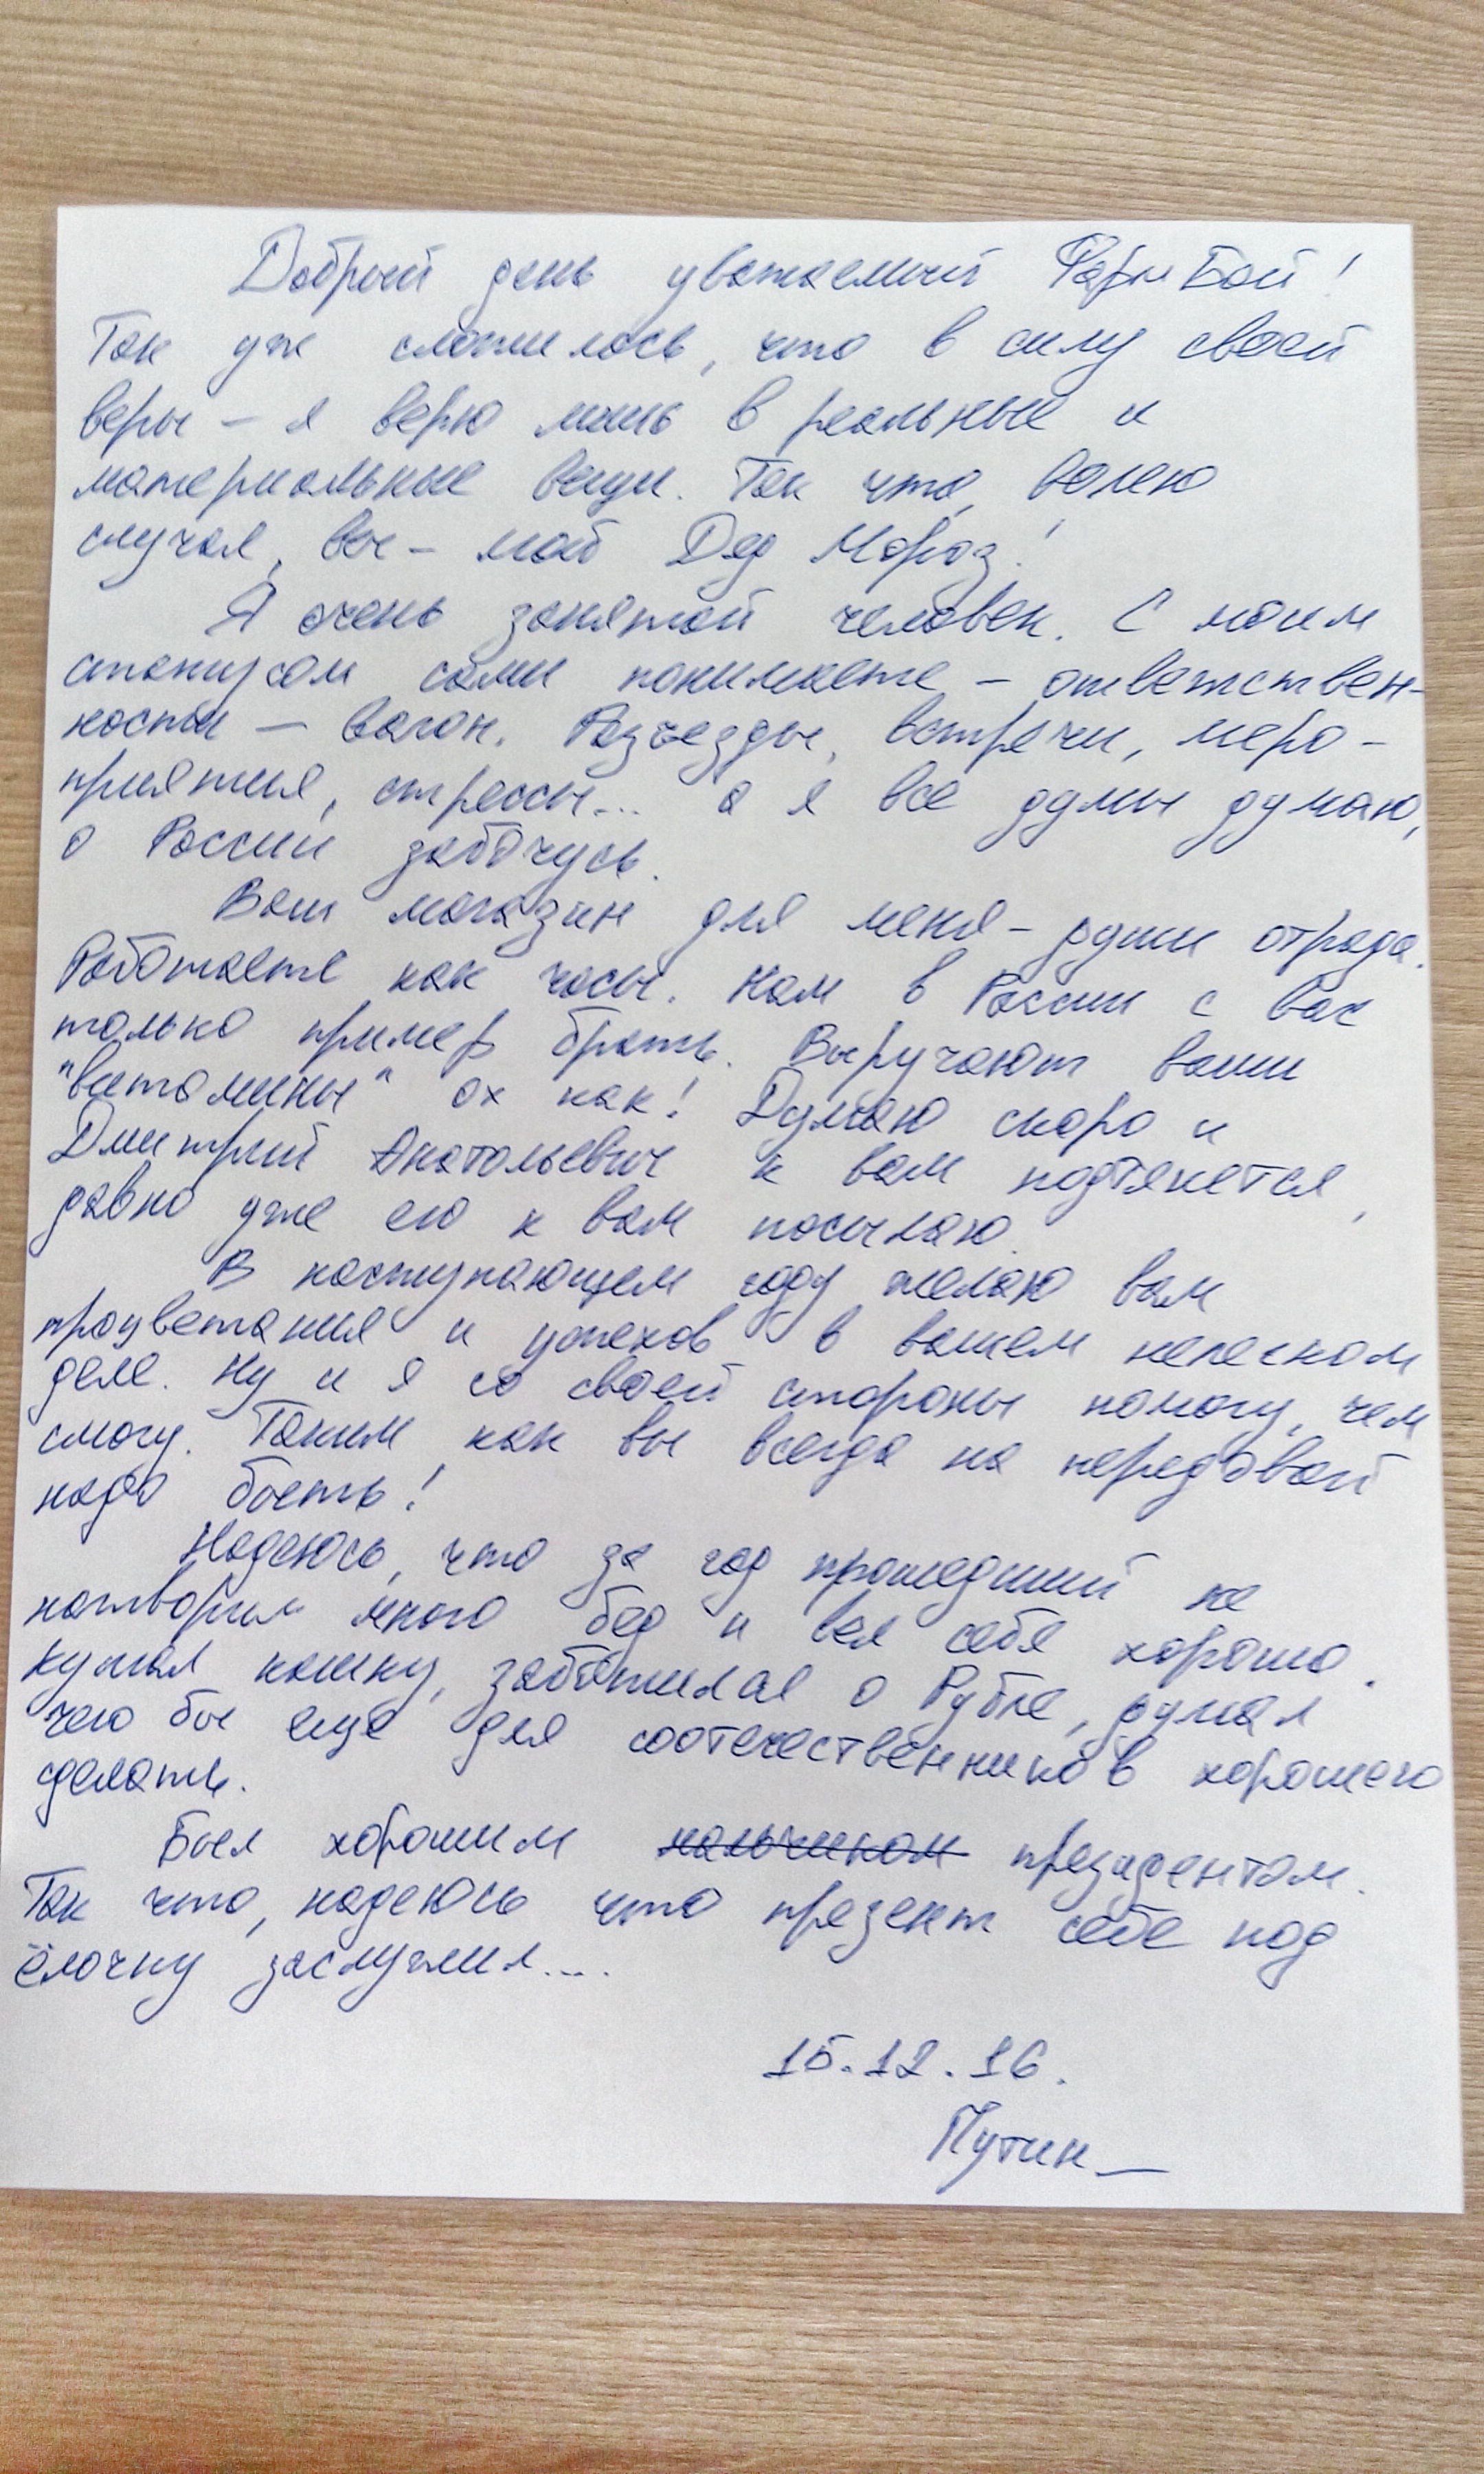 Добрый день уважаемый Фарм Бой!
Так уж сложилось, что в силу своей
веры – я верю лишь в реальные и
материальные вещи. Так что, волею
случая, вы – мой Дед Мороз!
Я очень занятой человек. С моим
статусом сами понимаете – ответствен-
ности – вагон. Разъезды, встречи, меро-
приятия, стрессы... а я все думы думаю,
о России забочусь.
Ваш магазин для меня – души отрада.
Работаете как часы. Нам в России с вас
только пример брать. Выручают ваши
"витамины" ох как! Думаю скоро и
Дмитрий Анатольевич к вам подтянется,
давно уже его к вам посылаю.
В наступающем году желаю вам
процветания и успехов в вашем нелегком
деле. Ну и я со своей стороны помогу, чем
смогу. Таким, как вы всегда на передовой
надо быть!
Надеюсь, что за год прошедший не
натворил много бед и вел себя хорошо.
Кушал кашку, заботился о Рубле, думал
чего бы еще для соотечественников хорошего
сделать.
Был хорошим мальчиком президентом.
Так что, надеюсь что презент себе под
ёлочку заслужил....
15.12.16.
Путин